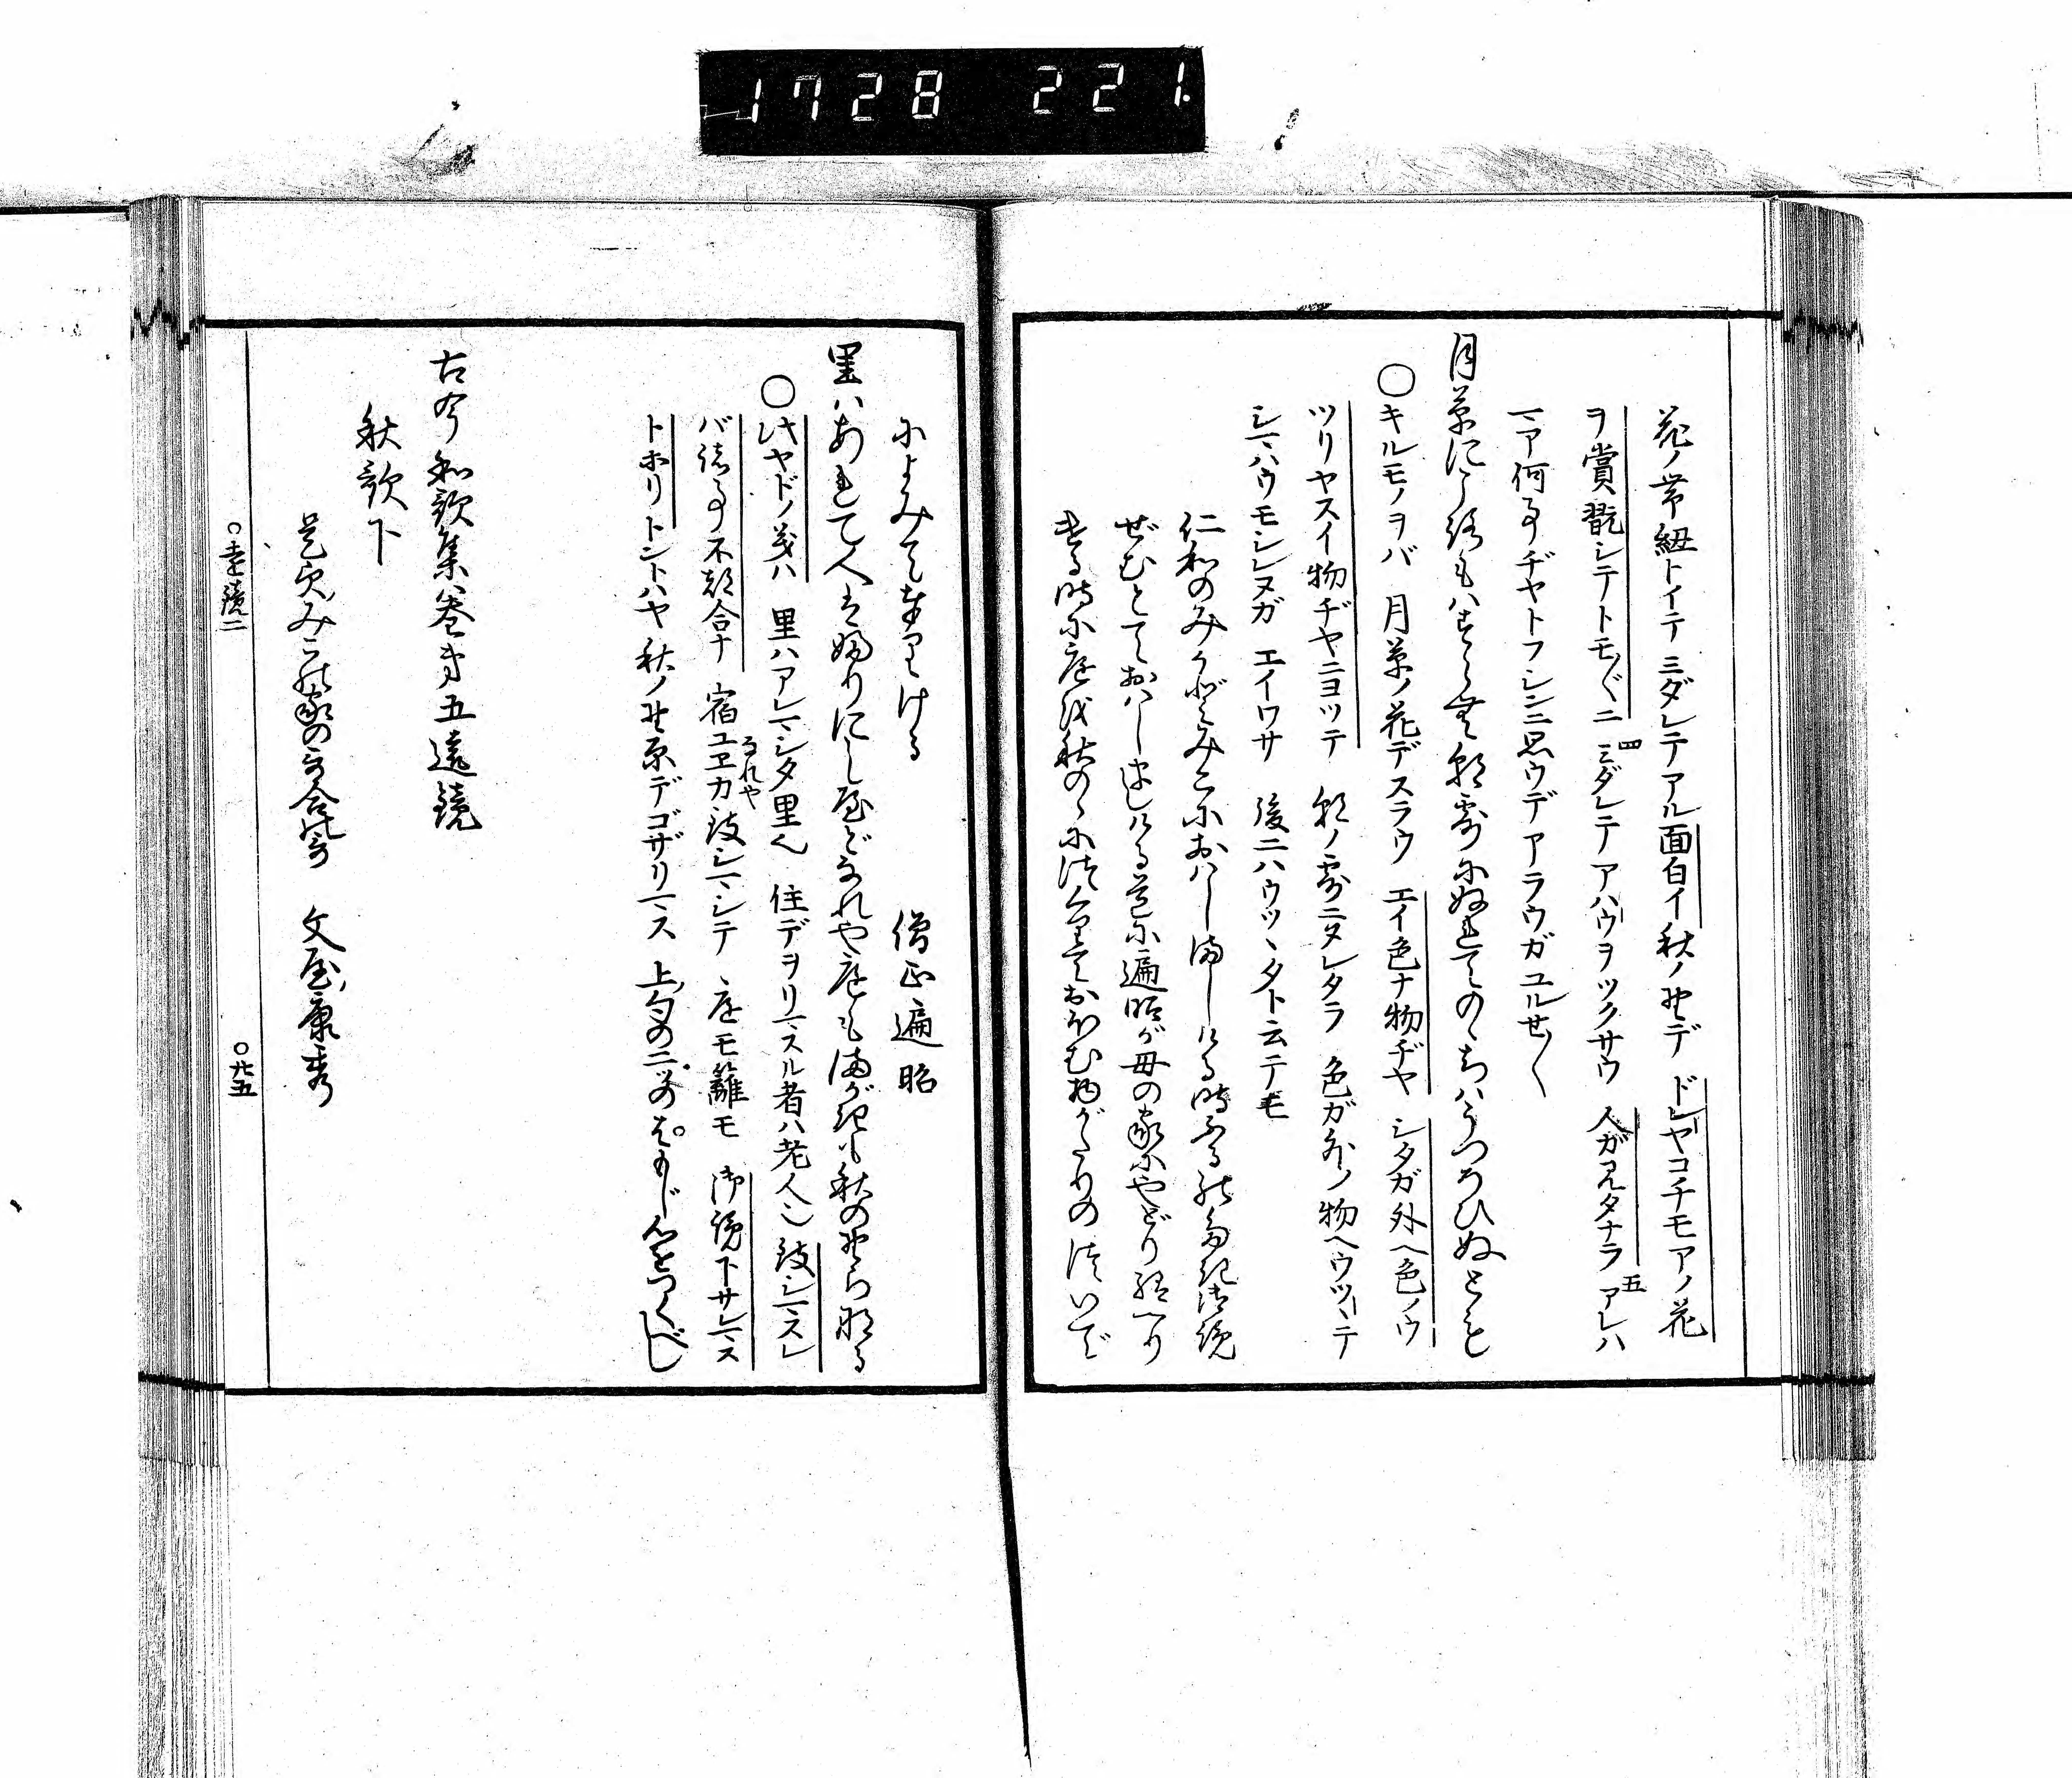 1728 221.
花ノ帯紐トイテ ミダレテアル面白イ秋ノ野デ ドレヤコチモアノ花
ヲ賞翫シテトモ〴〵ニ 四ミダレテアハウヲツクサウ 人ガ見タナラ 五アレハ
マア何事ヂヤトフシンニ思ウデアラウガユルセ〳〵
月草に衣ハすらむ朝露にぬれてのゝちハうつろひぬとも
○キルモノヲバ 月草ノ花デスラウ エイ色ナ物ヂヤ シタガ外ヘ色ノウ
ツリヤスイ物ヂヤニヨツテ 朝ノ露ニヌレタラ 色ガ外ノ物ヘウツヽテ
シマハウモシレヌガ エイワサ 後ニハウツヽタト云テモ
仁和のみかどみこにおハしましける時ふるの多記御覧
ぜむとておハしましける道に遍昭が母の家にやどり給へり
ける時に庭を秋のゝにつくりておほむ物がたりのついで
によみて奉りける
僧正遍昭
里ハあれて人はふりにし屋どなれや庭もまがきも秋の野らなる
○此ヤドノ義ハ 里ハアレマシタ里ヘ 住デヲリマスル者ハ老人ニ致シマスレ
バ諸事不都合ナ 宿ユヱカなれや 致シマシテ 庭モ籬モ 御覧下サレマス
トホリ トントハヤ秋ノ野原デゴザリマス 上ノ句の二ツのはもじ心をつくべし
古今和歌集巻第五遠鏡
秋歌下
是貞みこの家の哥合の哥 文屋康秀
○遠鏡二 ○廿五